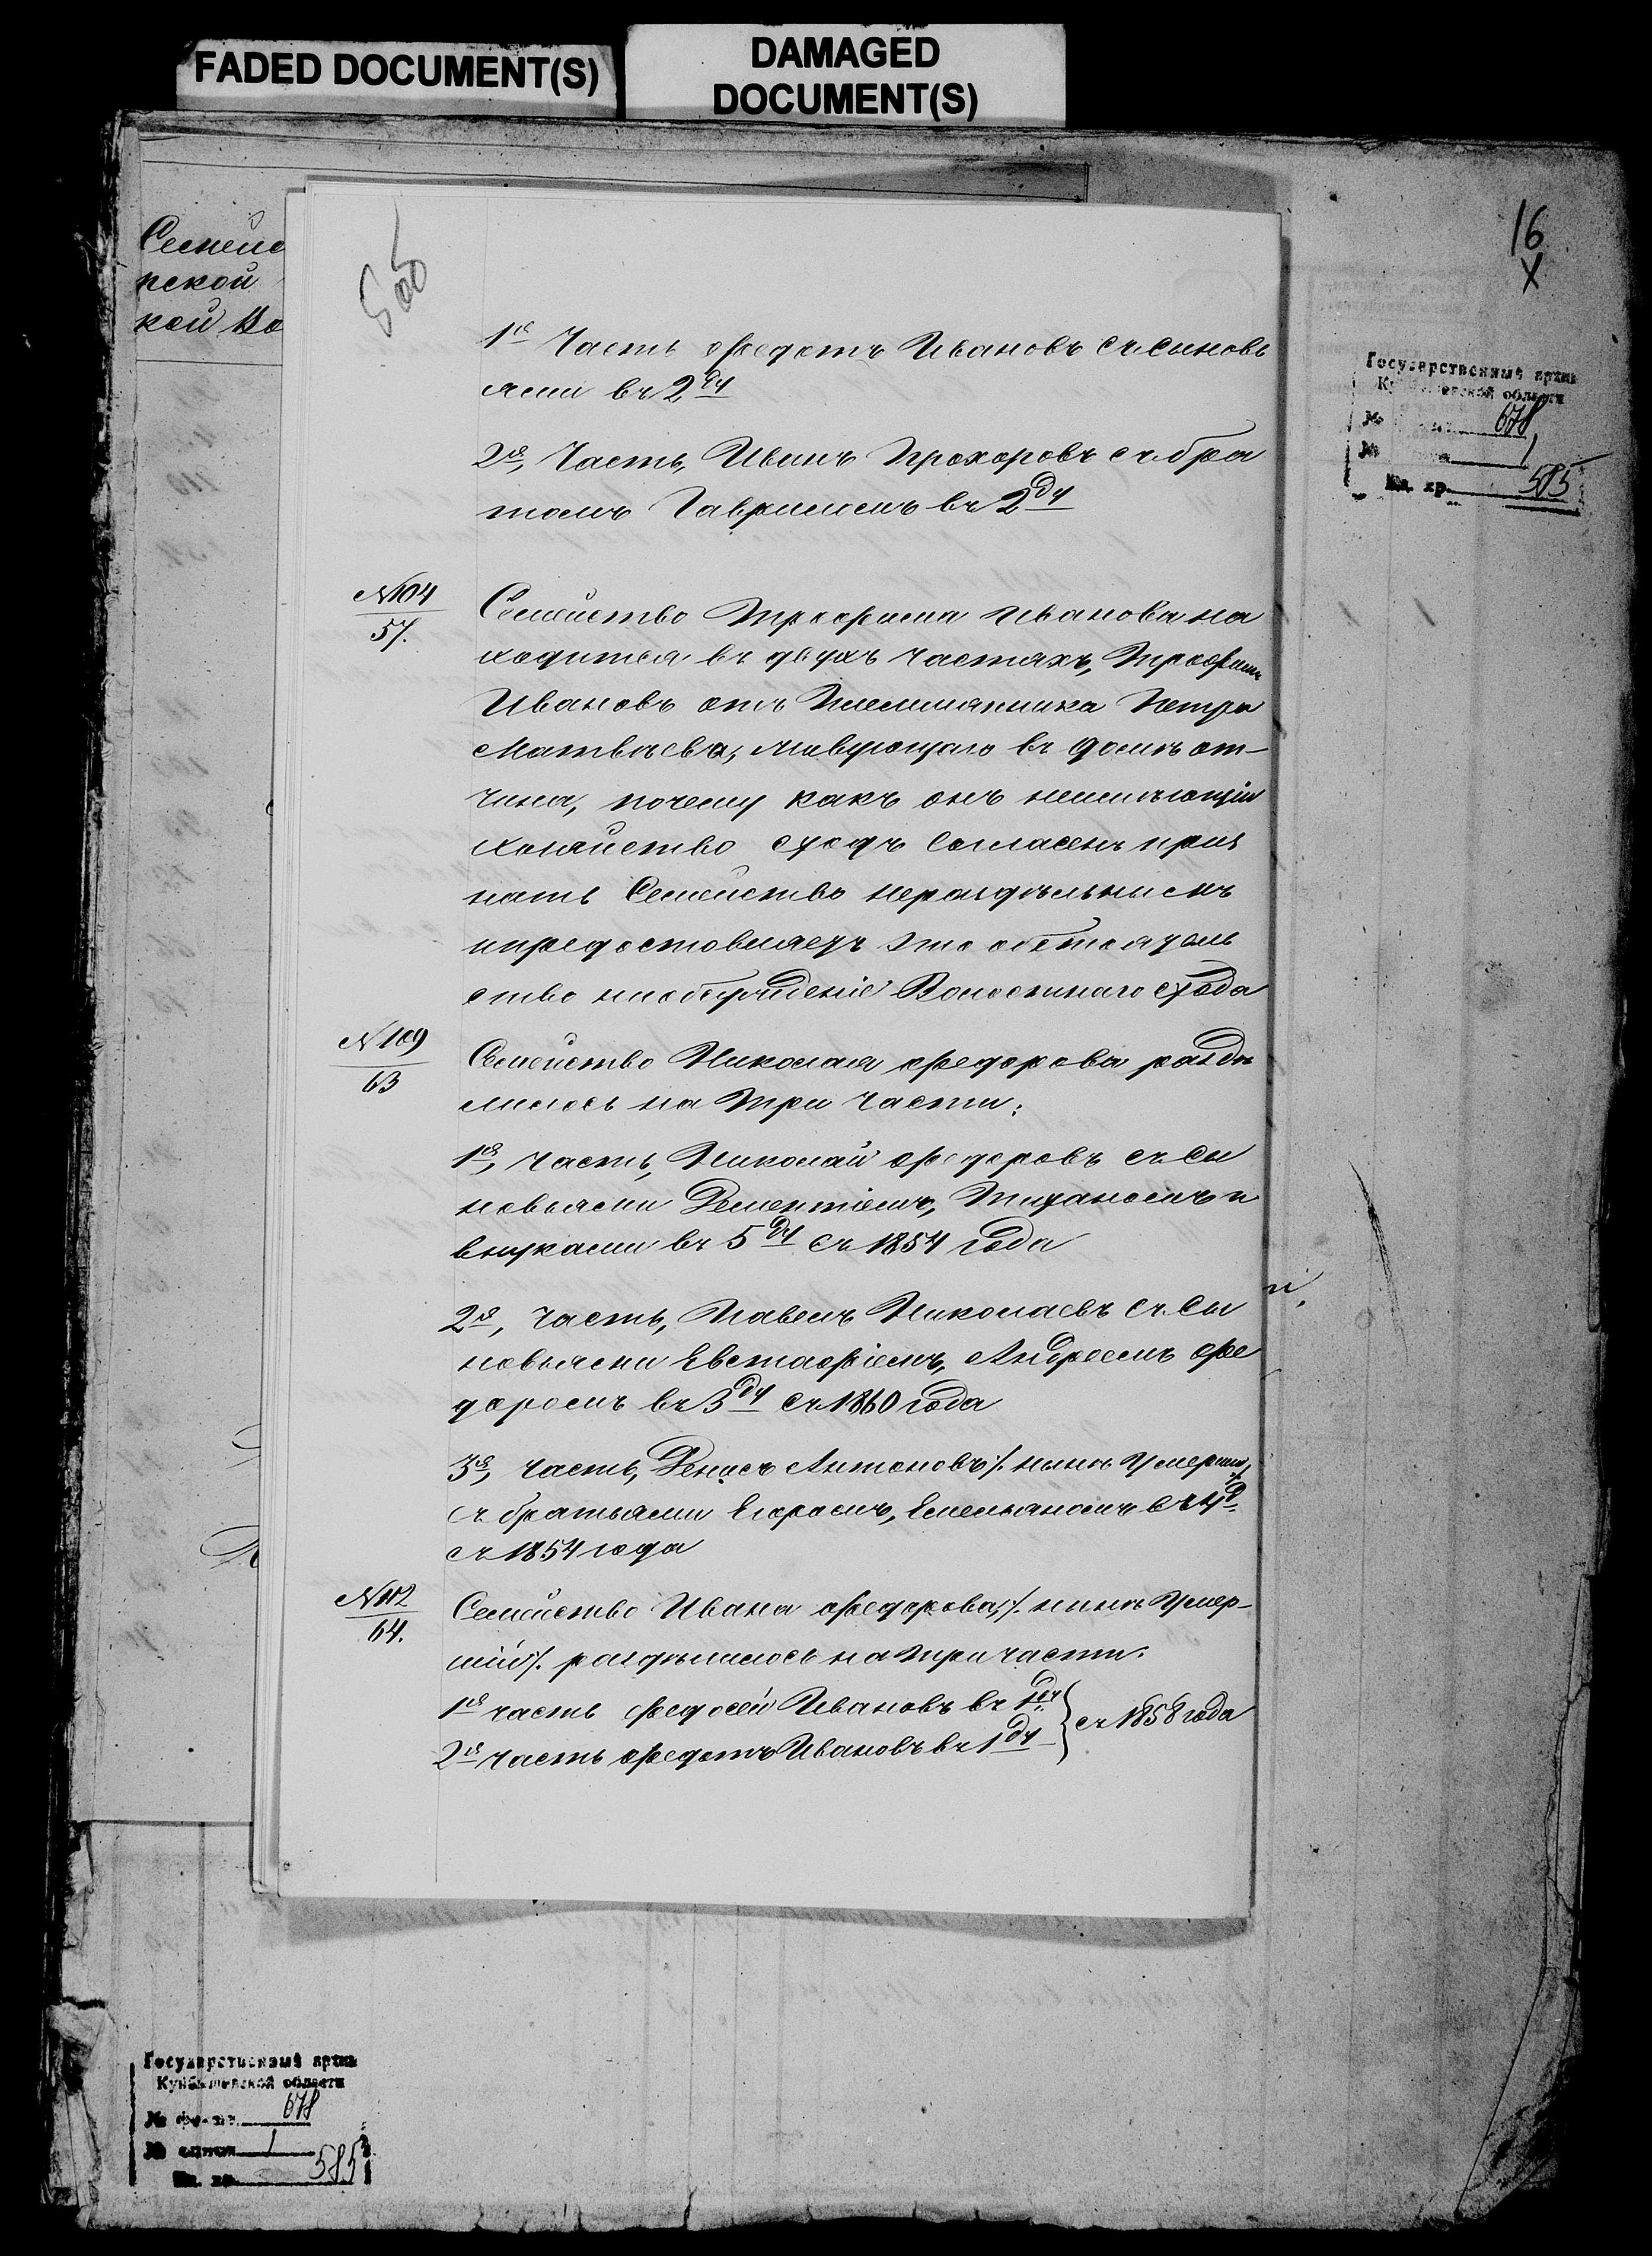 FADED DOCUMENT(S)
DAMAGED
DOCUMENT(S)
16
х
Семейс
кой Во
Государственный архив
Куйбышевской области
678
№ 1
Ед. хр. 585
1я Часть Ѳедотъ Ивановъ съ сыновь
ями въ 2 дч
2я, Часть, Иванъ Прохоровъ съ бра
томъ Гавриломъ въ 2 дч
№ 104
57.
Семейство Трофима Иванова на
ходится въ двухъ частяхъ, Трофим
Ивановъ отъ племянника Петра
Матвѣева, живущаго въ домѣ от-
чина, почему какъ онъ неимѣющій
хозяйство сходъ согласенъ приз
нать Семейство нераздѣльнымъ
и предоставляетъ это обстоятель
ство на обсужденіе Волостнаго схода
№ 109
63
Семейство Николая Ѳедорова раздѣ
лилось на три части:
1я, часть, Николай Ѳедоровъ съ сы
новьями Дементіемъ, Тиханомъ и
внуками въ 5 дч съ 1854 года
2я, часть, Павелъ Николаевъ съ сы
новьями Евстафіемъ, Андреемъ Ѳе
доромъ въ 3 дч съ 1860 года
3я, часть, Денисъ Антоновъ /. нынѣ умершій
съ братьями Егоромъ, Емельяномъ въ 4 д.
съ 1854 года
№ 112
64.
Семейство Ивана Ѳедорова, /. нынѣ умер-
шій /. раздѣлилось на три части.
1я часть Ѳедосѣй Ивановъ въ 1 дч
2я часть Ѳедотъ Ивановъ въ 1 дч } съ 1858 года
Государственный архив
Куйбышевской области
№ фонда 678
№ описи 1
Ед. хр. 585